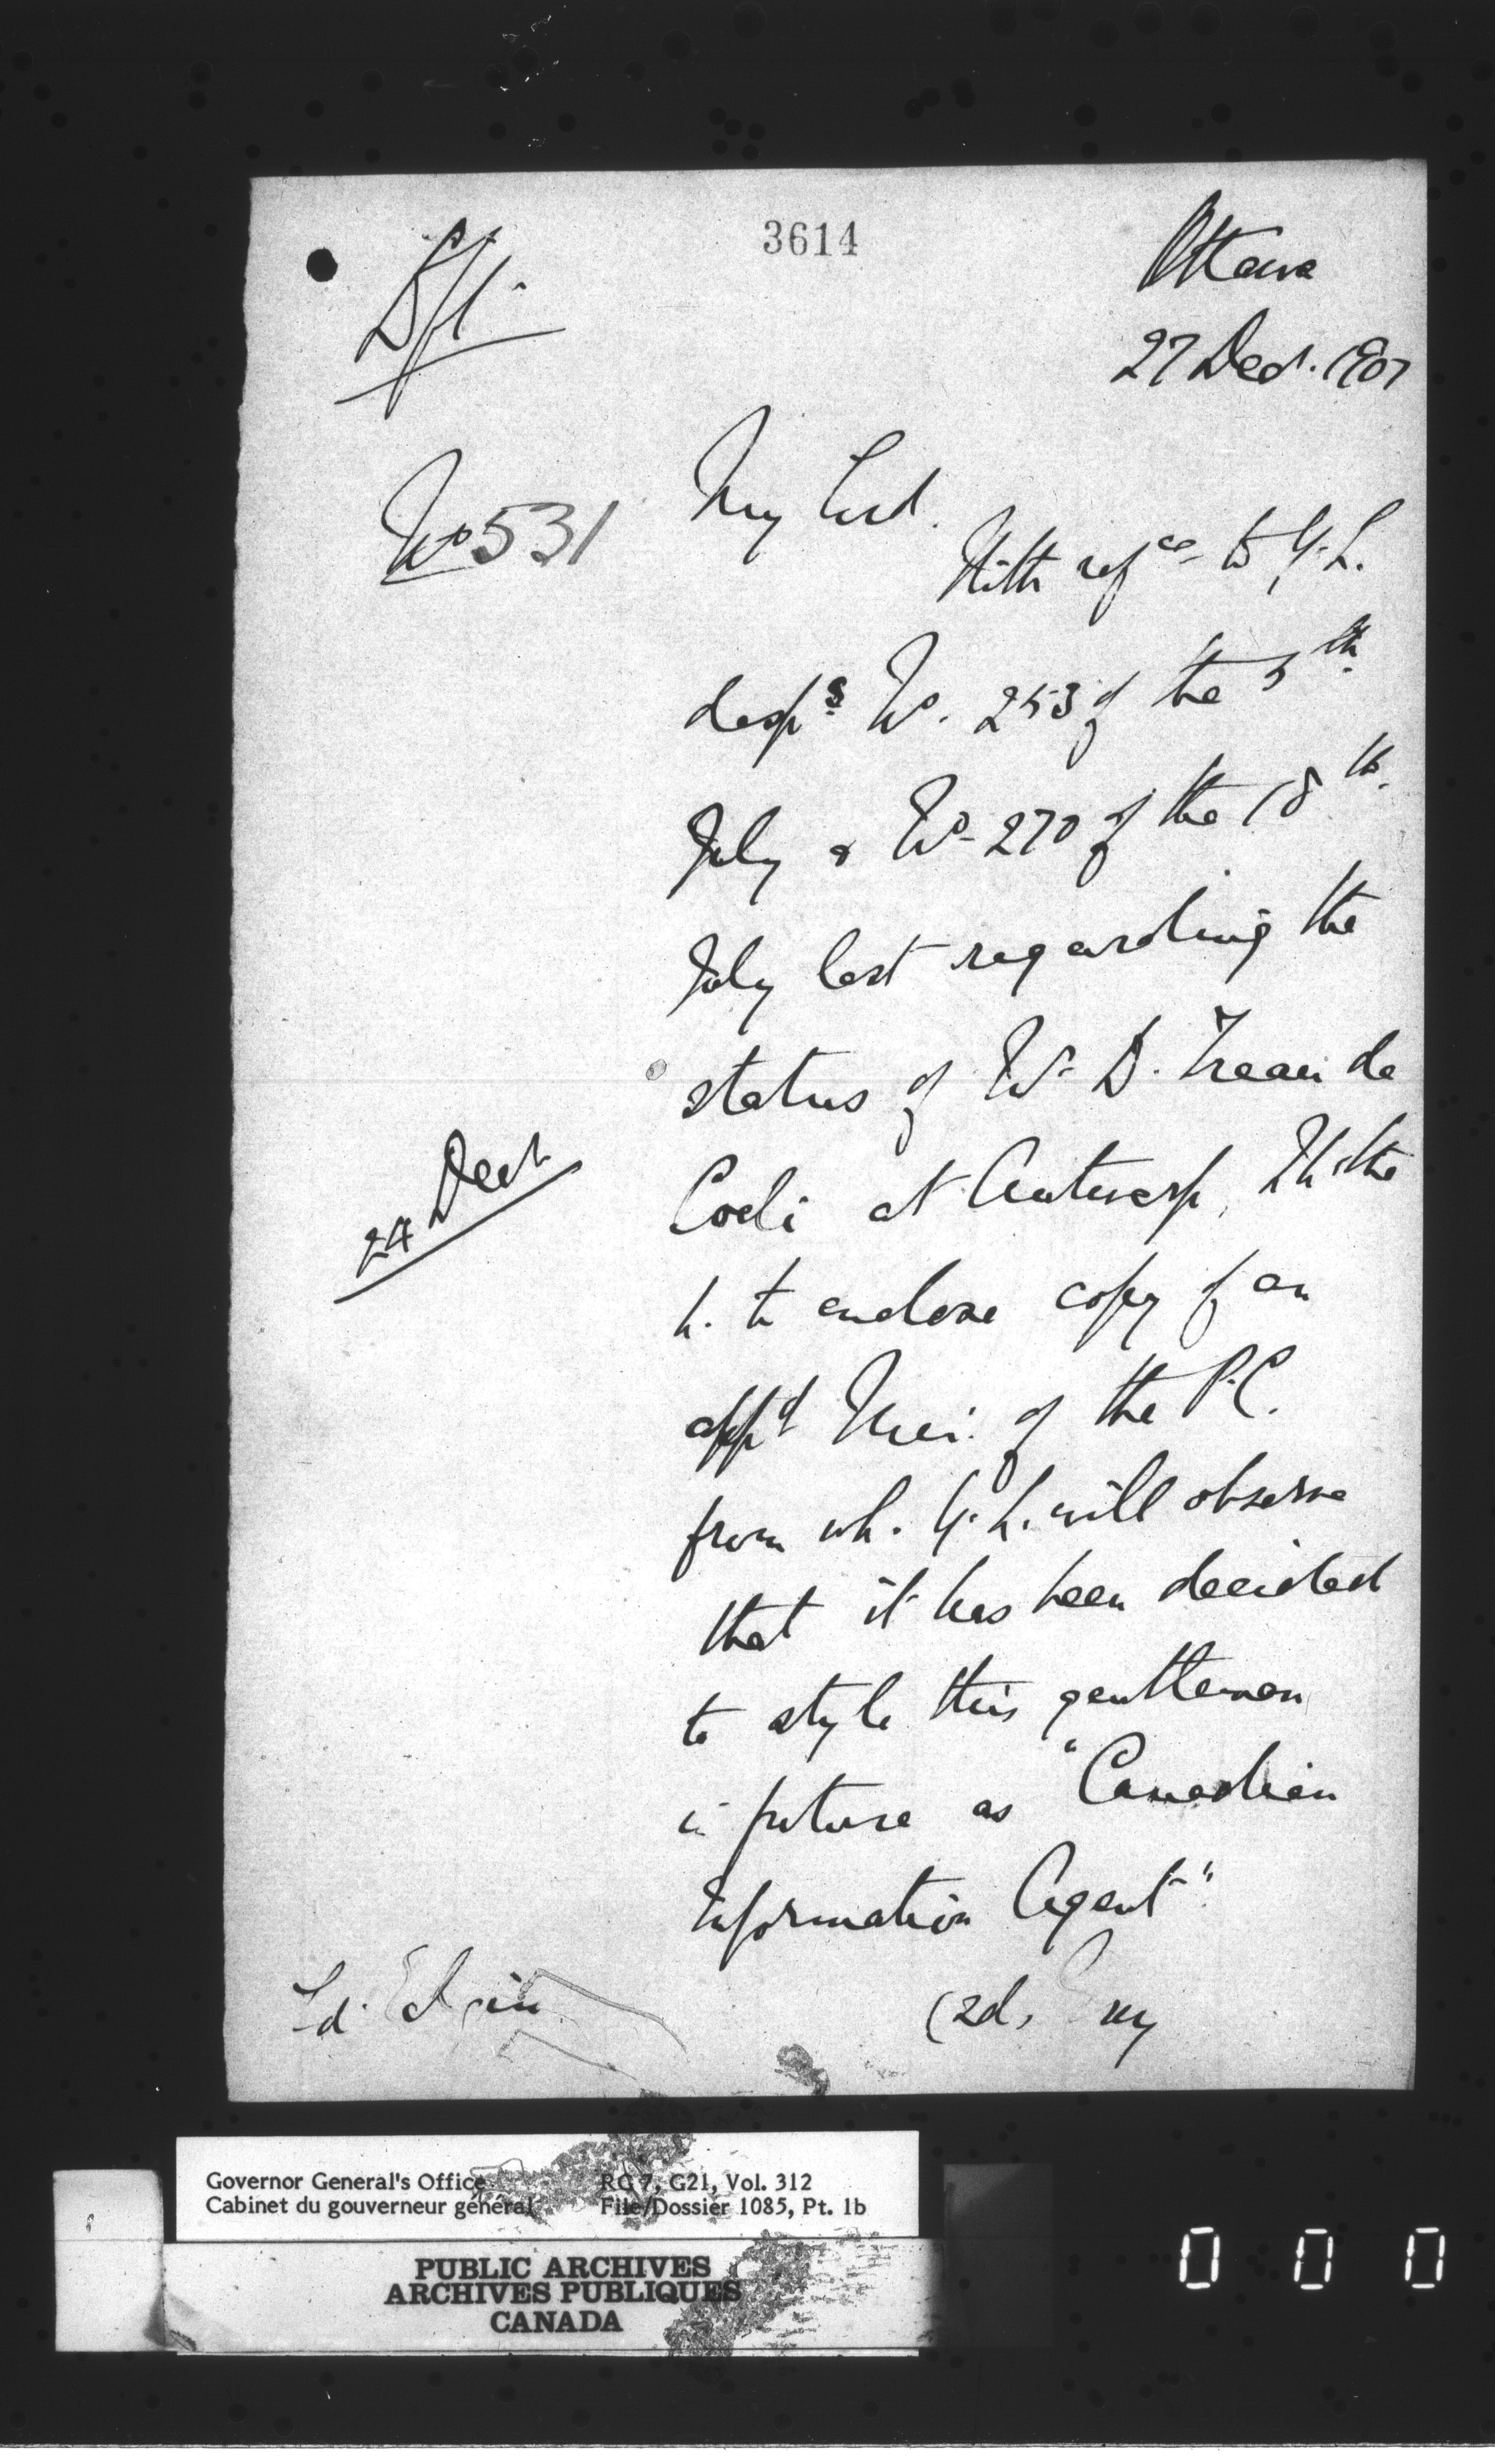 3614
Dft.
Ottawa
27 Dec. 1907
No 531
My Lord.
With refce to Y.L.
desps No. 253 of the 5th
July & No. 270 of the 18th
July last regarding the
status of D. Treau de
Coeli at Antwerp, I h. the
h. to enclose copy of an
appd Min. of the P.C.
from wh. Y.L. will observe
that it has been decided
to style this gentleman
in future as "Canadian
Information Agent".
24 Dec.
Ld. Elgin
(sd, Grey
Governor General's Office
Cabinet du gouverneur général
RG 7, G21, Vol. 312
File/Dossier 1085, Pt. 1b
PUBLIC ARCHIVES
ARCHIVES PUBLIQUES
CANADA
0 0 0